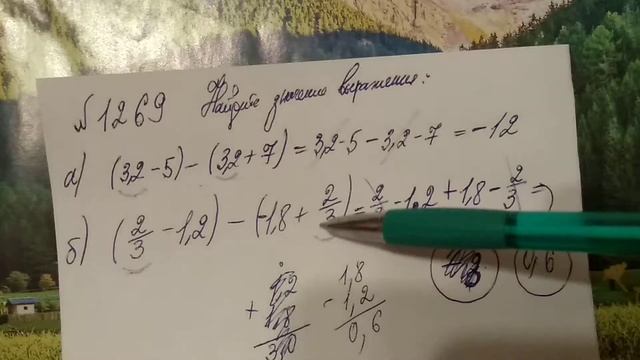 №1269 Найдите значение выражения:
а) (3,2-5)-(3,2+7)=3,2-5-3,2-7=-12
б) (2/3-1,2)-(-1,8+2/3)=2/3-1,2+1,8-2/3=
0,6
1,2 1,8
+ 1,8 - 1,2
3,0 0,6